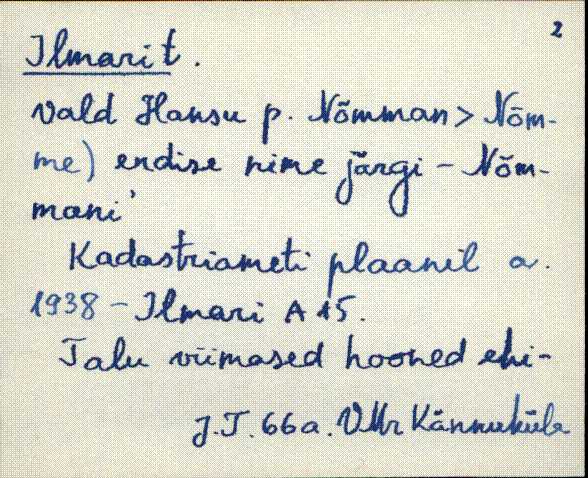 2
Ilmarit.
vald Hansu p. Nõmman > Nõm-
me) endise nime järgi - Nõm-
mani'
Kadastriameti plaanil a.
1938 - Ilmari A 15.
Talu viimased hooned ehi-
J.T. 66a. VMr Kännuküla